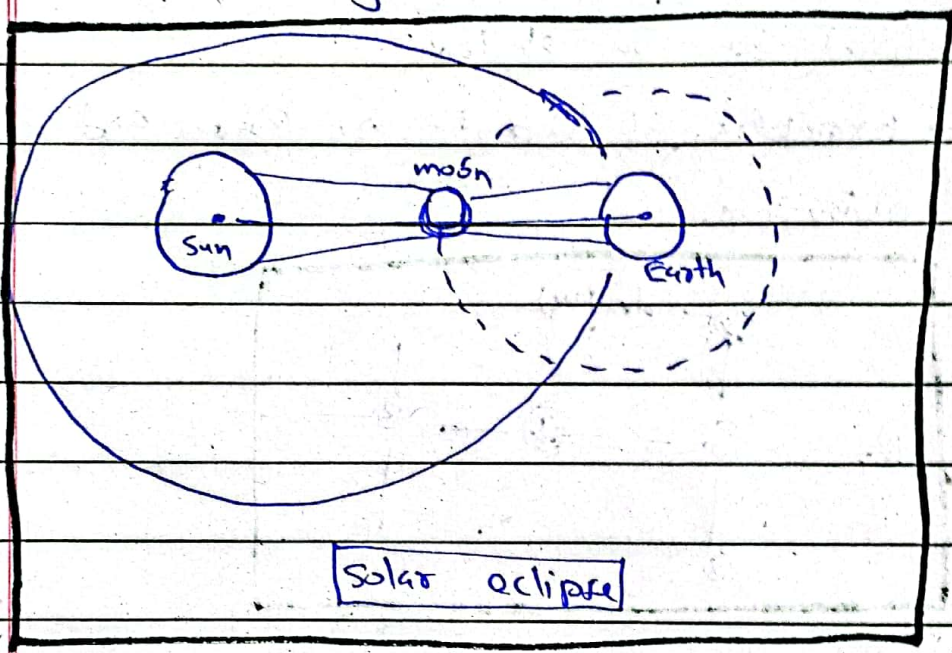 moon
Sun
Earth
Solar eclipse